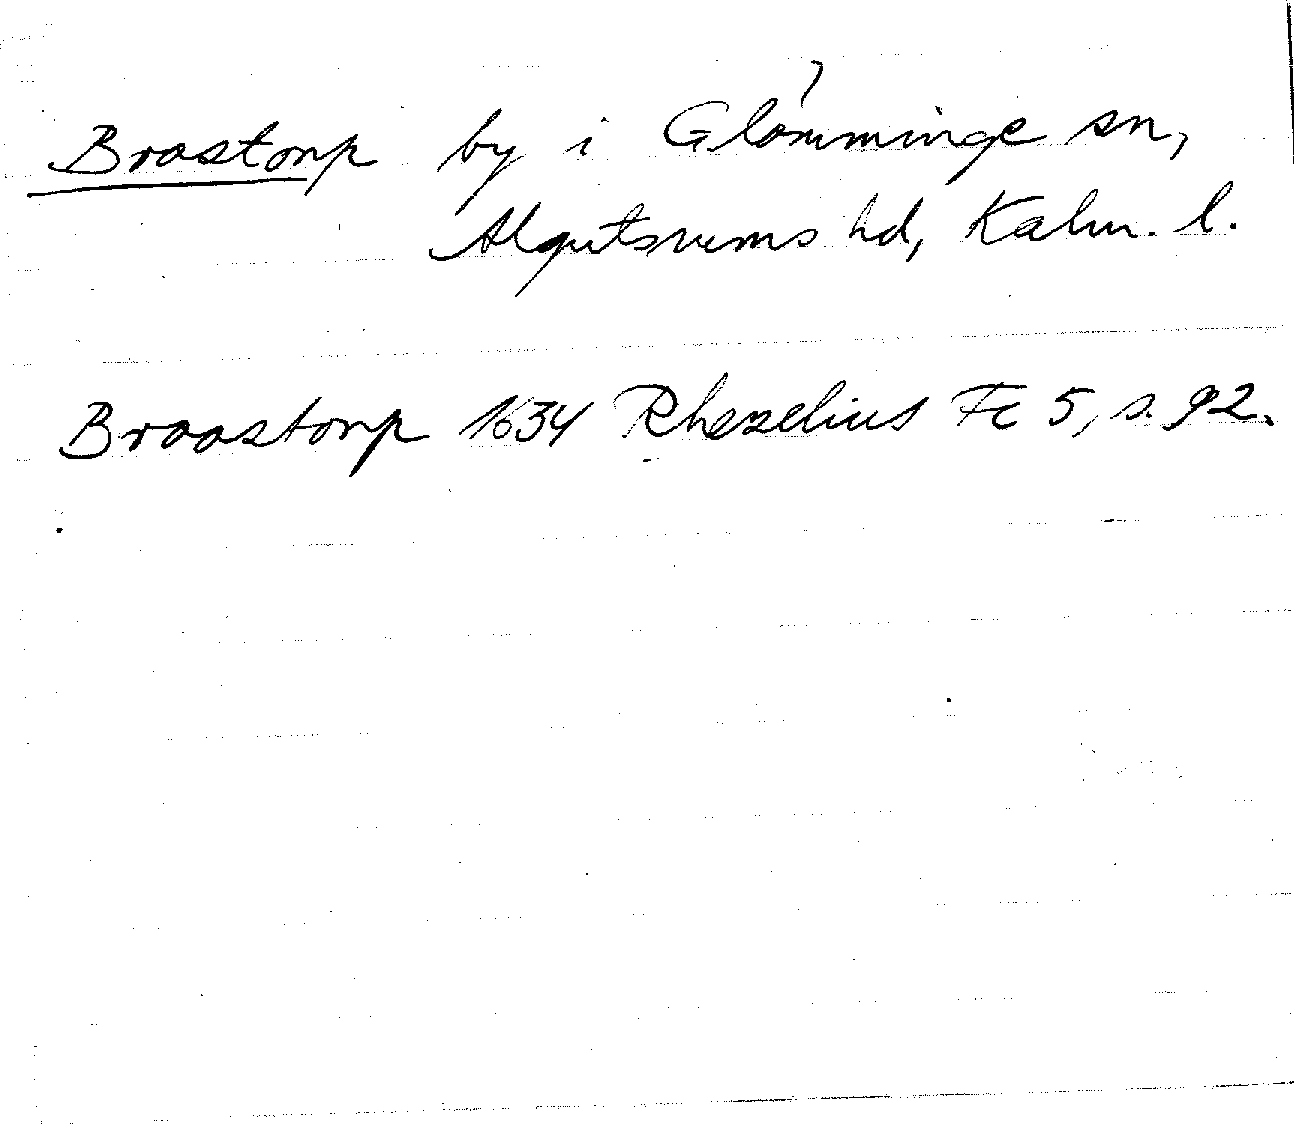 Brostorp by i Glömminge sn,
Algutsrums hd, Kalm. l.
Broostorp 1634 Rhezelius Fc 5, s. 92.